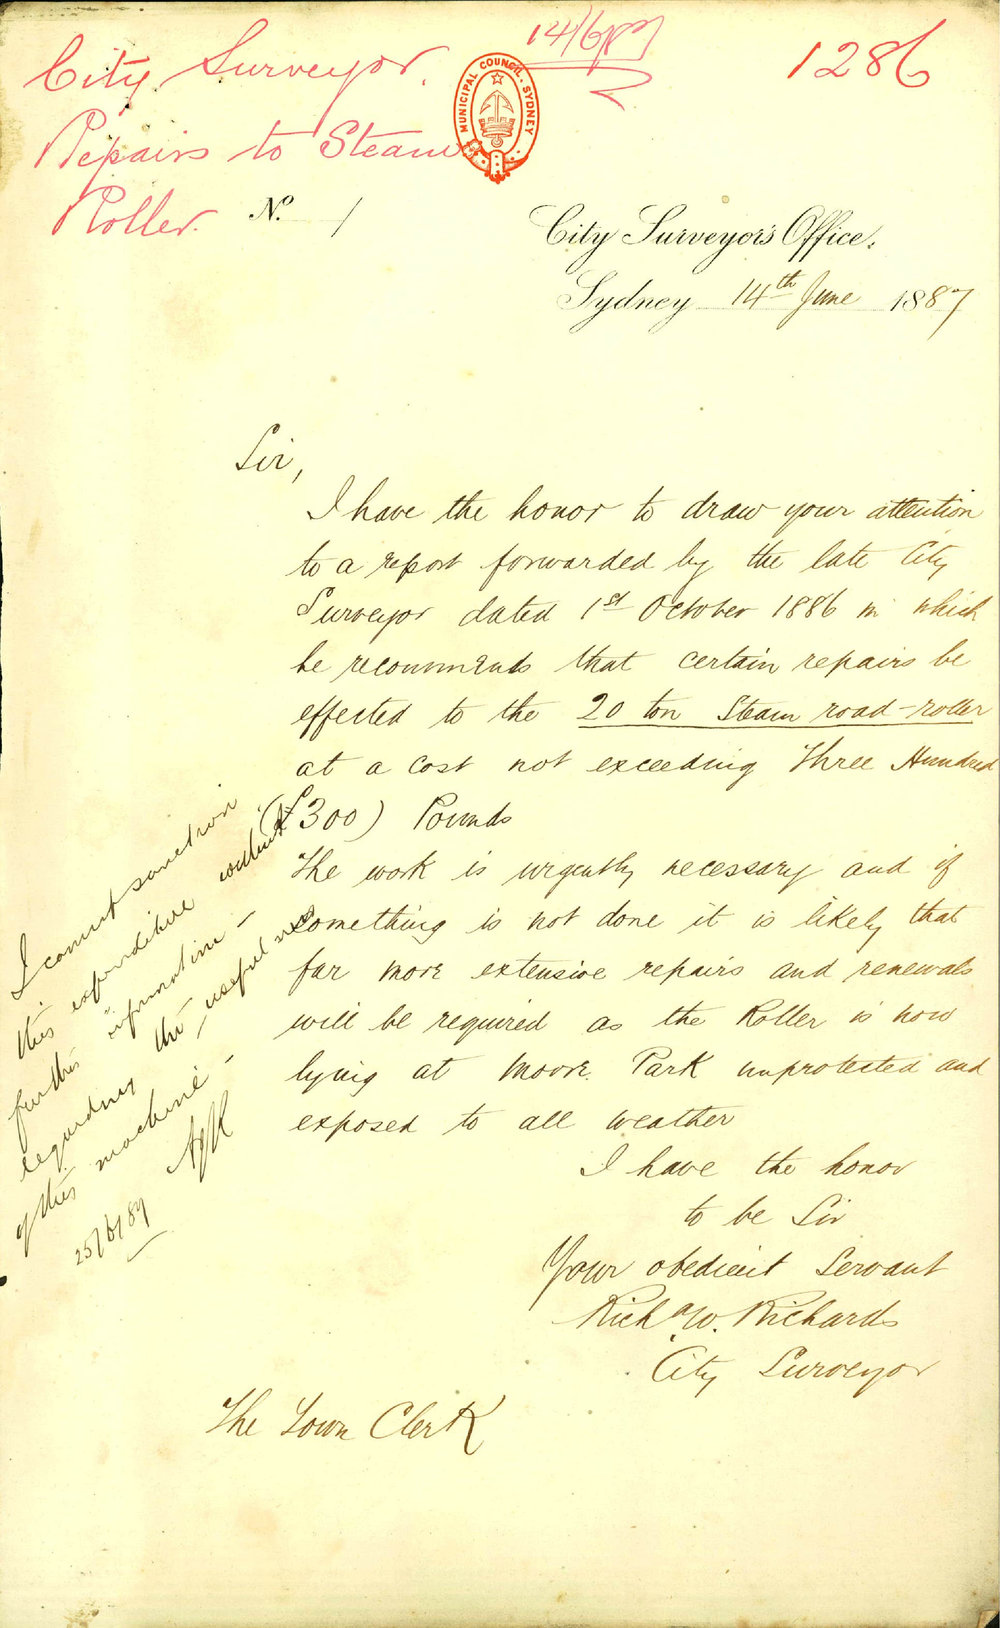 City Surveyor.
Repairs to Steam
Roller.
14/6/87
1286
MUNICIPAL COUNCIL. SYDNEY
No. 1
City Surveyor's Office,
Sydney 14th June 1887
Sir,
I have the honor to draw your attention
to a report forwarded by the late City
Surveyor dated 1st October 1886 in which
he recommends that certain repairs be
effected to the 20 ton Steam road-roller
at a cost not exceeding Three Hundred
(£300) Pounds
The work is urgently necessary and if
something is not done it is likely that
far more extensive repairs and renewals
will be required as the Roller is now
lying at Moore Park unprotected and
exposed to all weather
I have the honor
to be Sir
Your obedient Servant
Richd W. Richards
City Surveyor
The Town Clerk
I cannot sanction
this expenditure without
further information –
regarding the usefulness
of this machine –
25/6/87